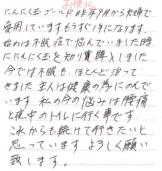 お便り
にんにく玉ゴールドは昨年9月から夫婦で
愛用していますもうすぐ1年になります。
始めは不眠症で悩んでいました時
ににんにく玉を知り購入しました
今では不眠も、ほとんど治って
きました 主人は健康の為にのんで
います 私の今の悩みは腰痛
と夜中のトイレに行く事です
これからも続けて行きたいと
思っています よろしく願い
致します。